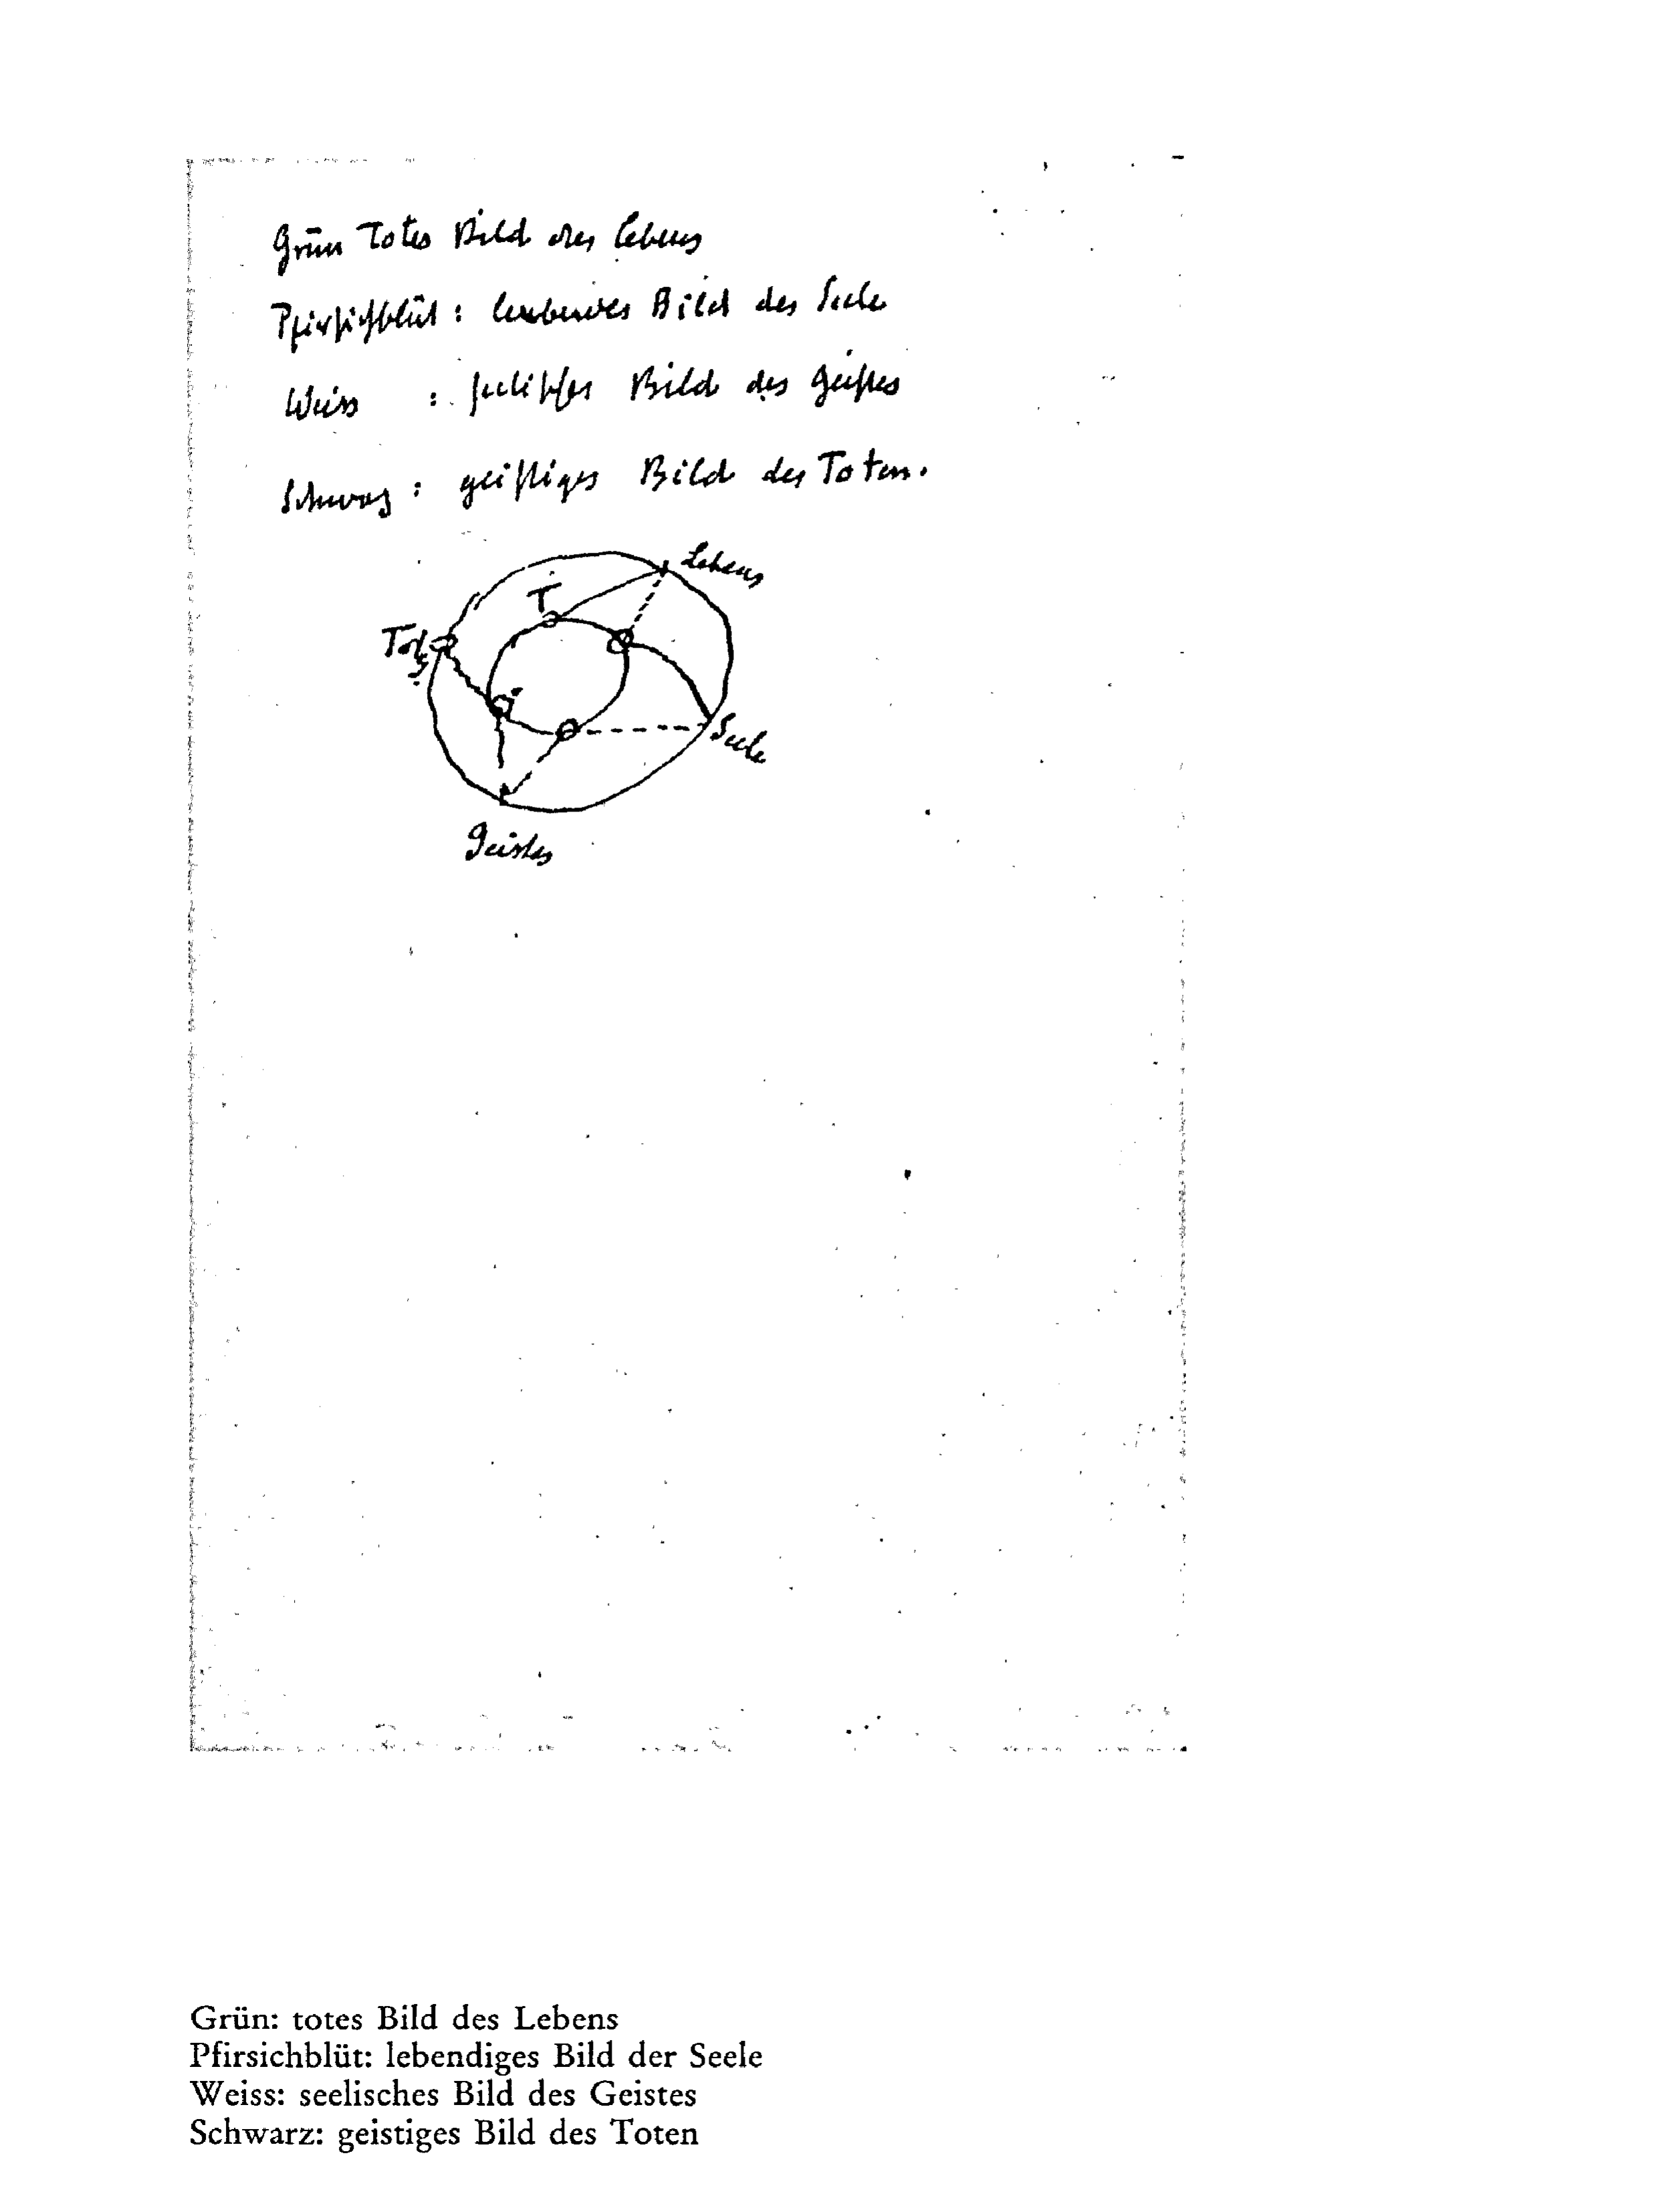 Grün Totes Bild des Lebens
Pfirsichblüt: lebendes Bild der Seele
Weiss : seelisches Bild des Geistes
Schwarz: geistiges Bild des Toten.
Lebens
T
Tot
Seele
Geistes
Grün: totes Bild des Lebens
Pfirsichblüt: lebendiges Bild der Seele
Weiss: seelisches Bild des Geistes
Schwarz: geistiges Bild des Toten